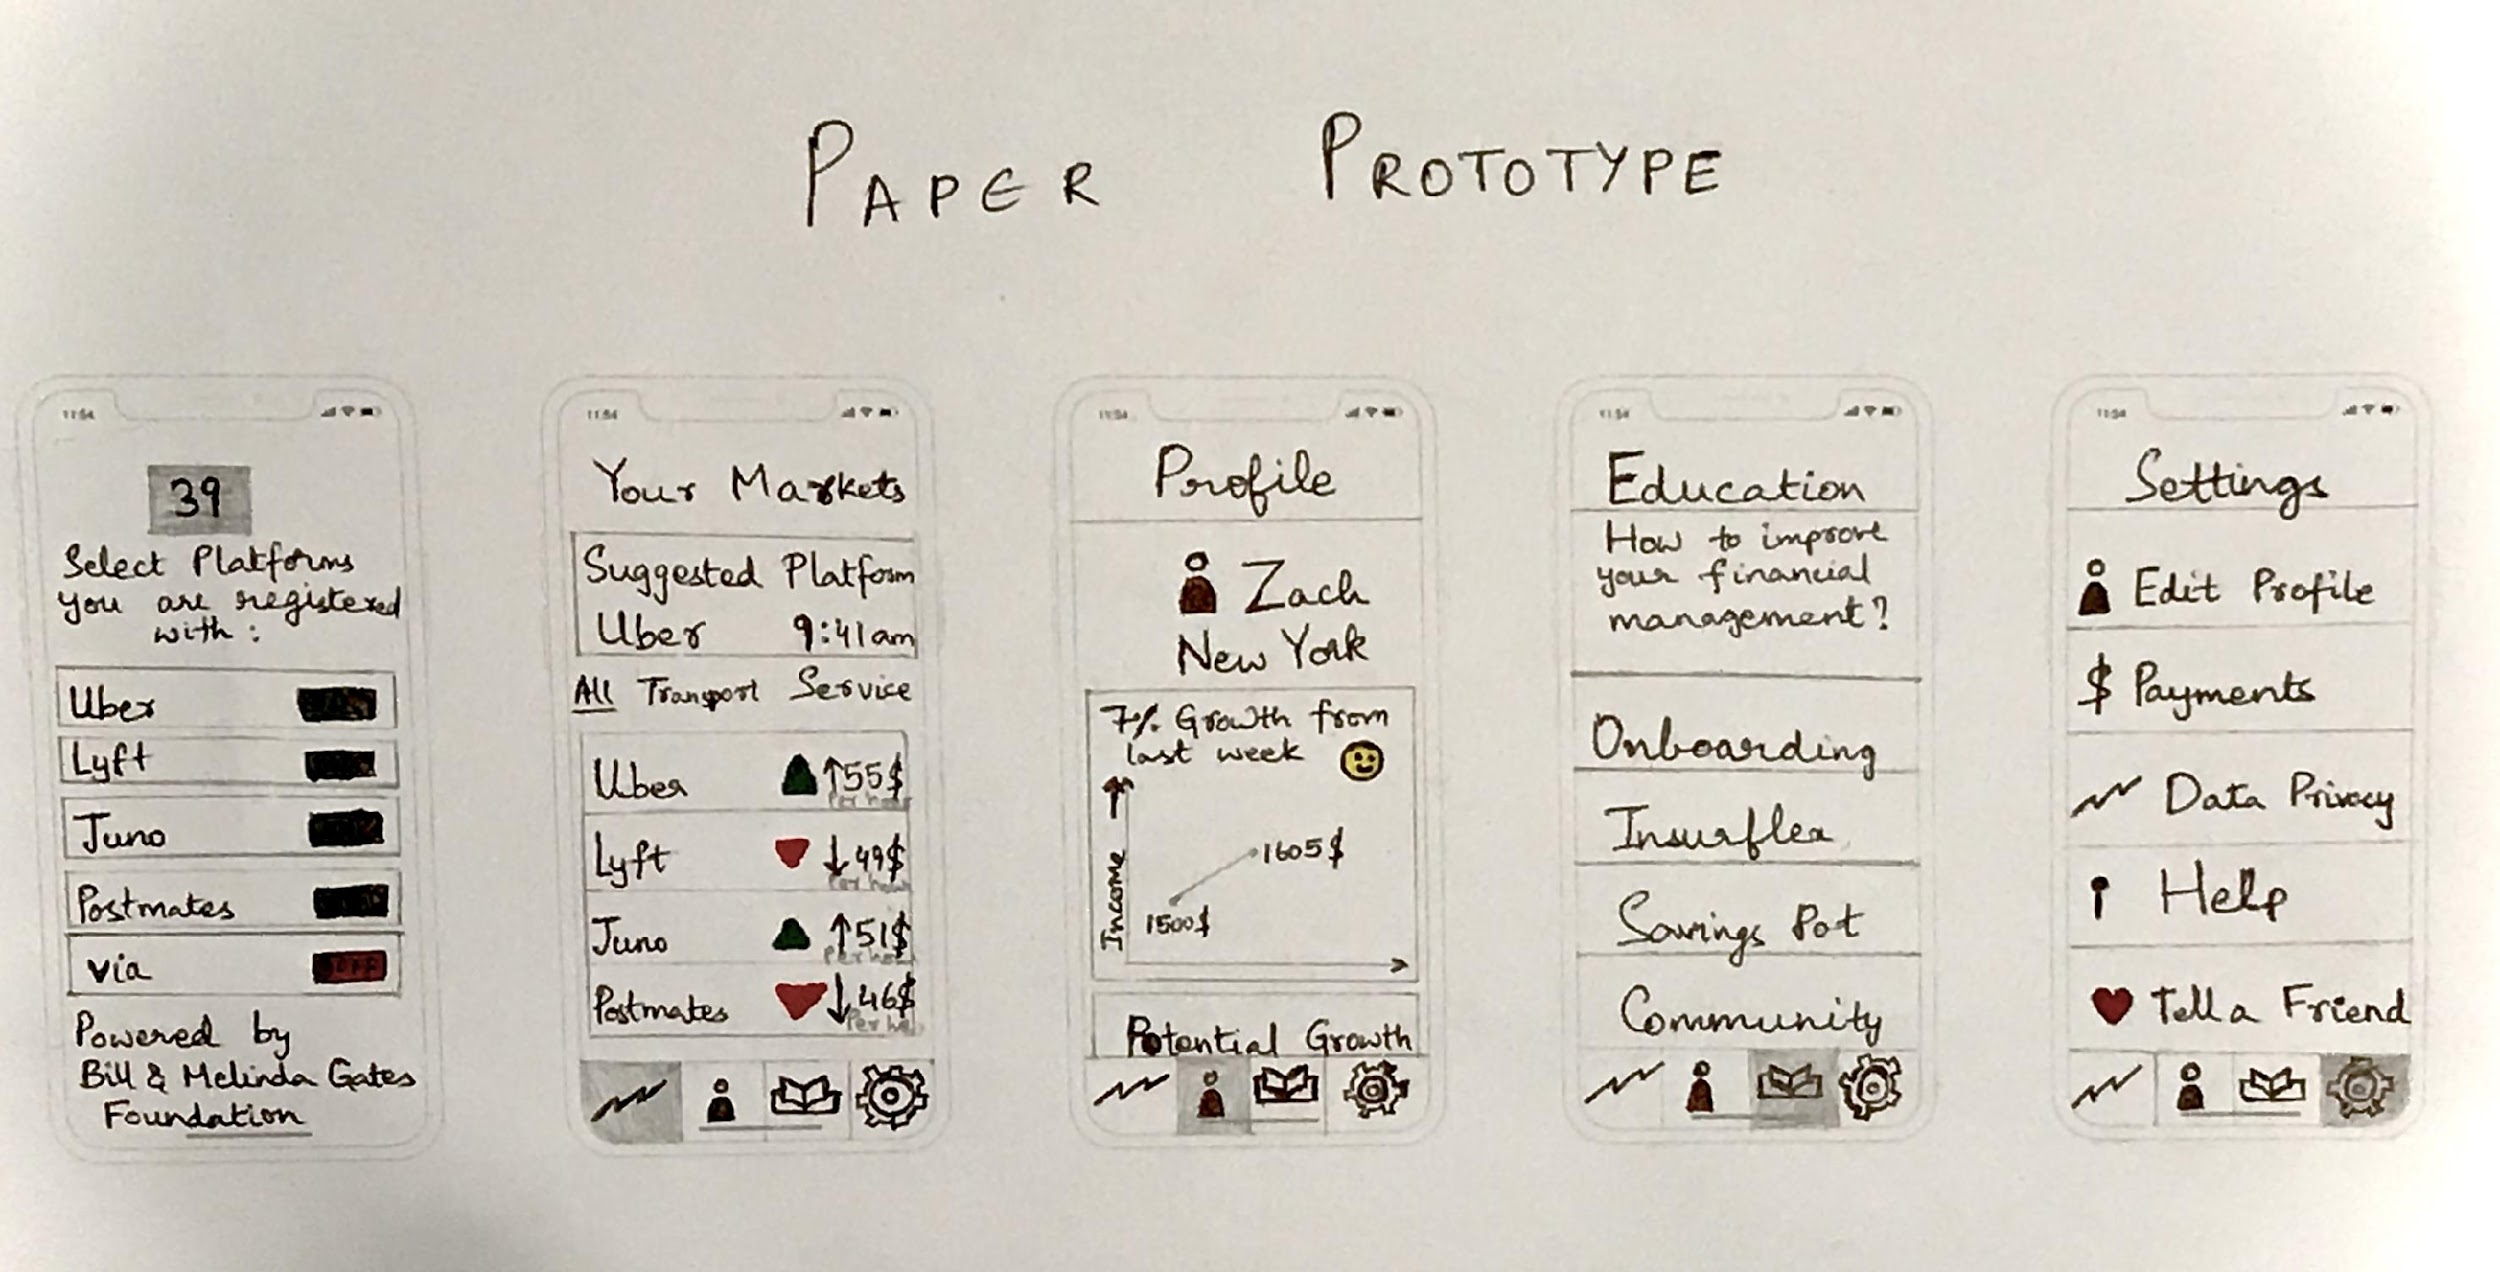 PAPER PROTOTYPE
11:54
39
Select Platforms
you are registered
with:
Uber
Lyft
Juno
Postmates
via
OFF
Powered by
Bill & Melinda Gates
Foundation
11:54
Your Markets
Suggested Platform
Uber 9:41am
All Transport Service
Uber ↑55$
Per hour
Lyft ↓49$
Per hour
Juno ↑51$
Per hour
Postmates ↓46$
Per hou
11:54
Profile
Zach
New York
7% Growth from
last week
Income
1605$
1500$
Potential Growth
11:54
Education
How to improve
your financial
management?
Onboarding
Insurflex
Savings Pot
Community
11:54
Settings
Edit Profile
$ Payments
Data Privacy
Help
Tell a Friend